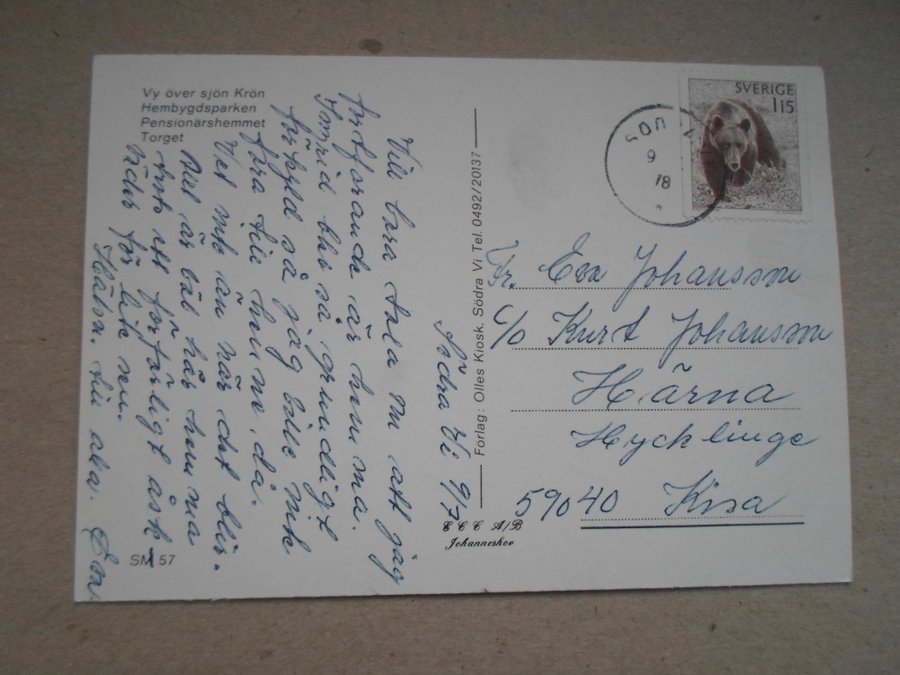 Vy över sjön Krön
Hembygdsparken
Pensionärshemmet
Torget
Södra Vi 9/7
Vill bara tala om att jag
fortfarande är hemma.
så grundligt
förkyld så jag ville inte
fara till henne då.
Vet inte än när det blir.
Allt är väl här hemma
trots ett förfärligt åsk-
väder för lite sen.
Hälsn. till alla. Eva
SM 57
Förlag: Olles Kiosk. Södra Vi Tel. 0492/20137
C C C A/B
Johanneshov
SVERIGE
115
9
78
Fr. Eva Johansson
c/o Kurt Johansson
Härna
Hycklinge
59040 Kisa